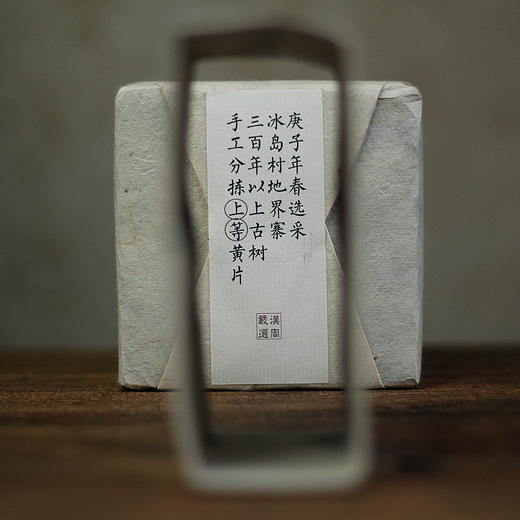 庚子年春选采
冰岛村地界寨
三百年以上古树
手工分拣上等黄片
漢周
嚴選